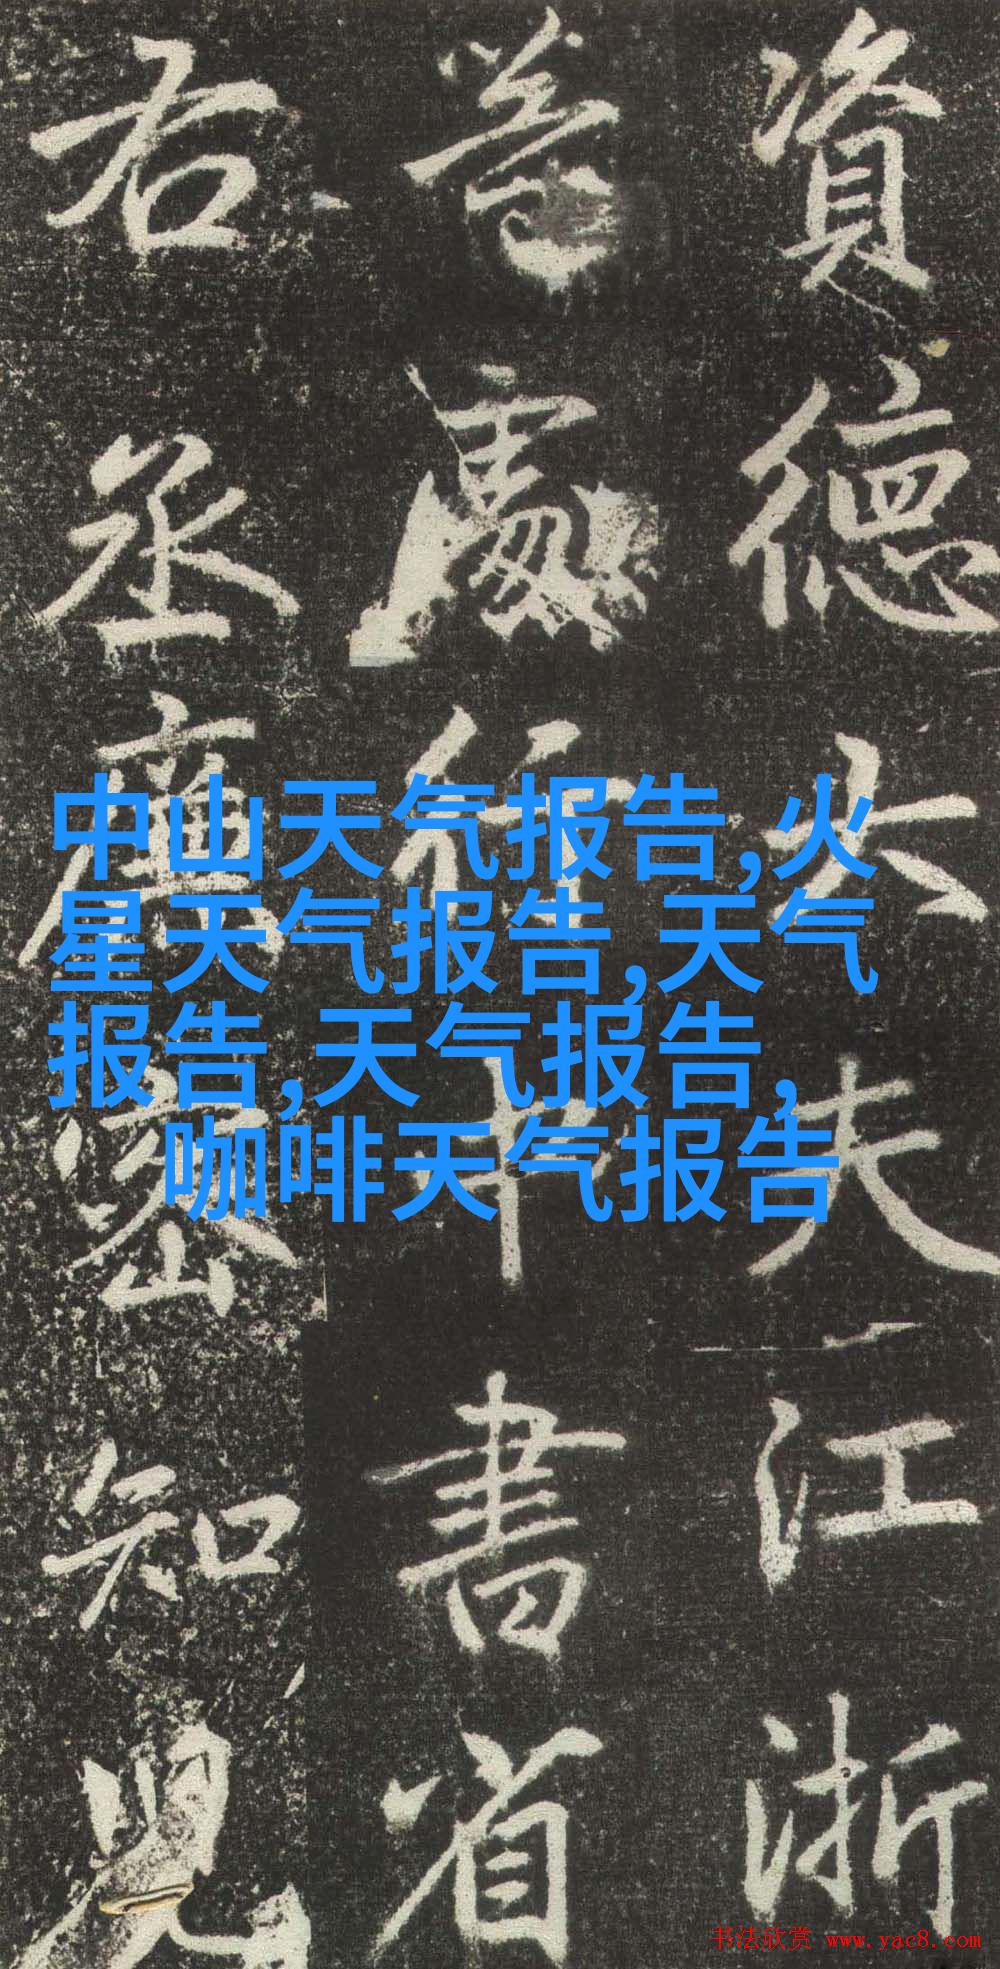 資德大夫江浙
等處行中書省
右丞廉密知兒
中山天气报告,火
星天气报告,天气
报告,天气报告,
咖啡天气报告
书法欣赏 www.yac8.com